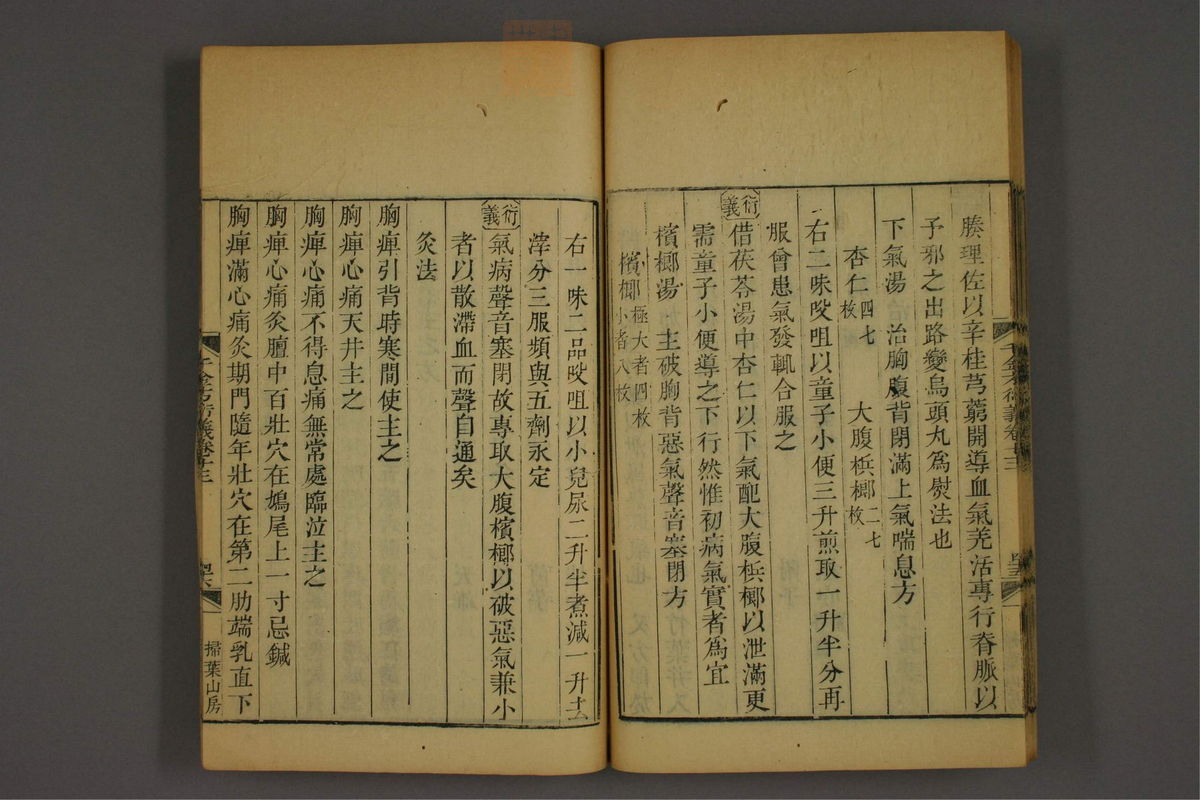 腠理佐以辛桂芎藭開導血氣羌活專行脊脈以
予邪之出路變烏頭丸為熨法也
下氣湯　治胸腹背閉滿上氣喘息方
杏仁四七枚　大腹梹榔二七枚
右二味㕮咀以童子小便三升煎取一升半分再
服曾患氣發輒合服之
衍義
借茯苓湯中杏仁以下氣配大腹梹榔以泄滿更
需童子小便導之下行然惟初病氣實者為宜
檳榔湯　主破胸背惡氣聲音塞閉方
檳榔極大者四枚小者八枚
右一味二品㕮咀以小兒尿二升半煮減一升去
滓分三服頻與五劑永定
衍義
氣病聲音塞閉故專取大腹檳榔以破惡氣兼小
者以散滯血而聲自通矣
灸法
胸痺引背時寒間使主之
胸痺心痛天井主之
胸痺心痛不得息痛無常處臨泣主之
胸痺心痛灸膻中百壯穴在鳩尾上一寸忌鍼
胸痺滿心痛灸期門隨年壯穴在第二肋端乳直下
千金方衍義卷十三
掃葉山房